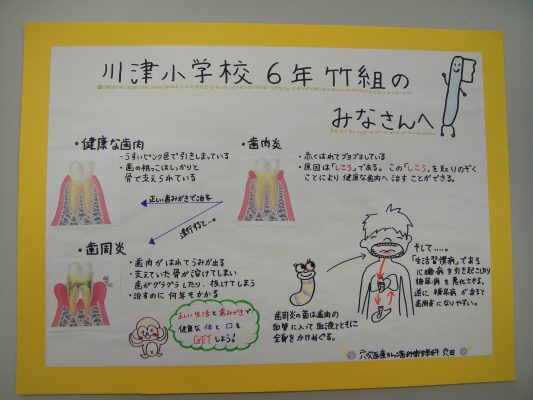 川津小学校 6年 竹組の
みなさんへ
・健康な歯肉
・うすいピンク色で引きしまっている
・歯の根っこはしっかりと
骨で支えられている
・歯肉炎
・赤くはれてブヨブヨしている
・原因は「しこう」である。この「しこう」を取りのぞく
ことにより健康な歯肉へ治すことができる。
正しい歯みがきで治る
進行すると…。
・歯周炎
・歯肉がはれてうみが出る
・支えていた骨が溶けてしまい
歯がグラグラしたり、抜けてしまう
・治すのに何年もかかる
正しい生活と歯みがきで
健康な体と口を
GETしよう!
歯周炎の菌は歯肉の
血管に入って血液とともに
全身をかけめぐる。
そして……。
「生活習慣病」である
心臓病を引き起こしたり
糖尿病を悪化させる。
逆に糖尿病があると
歯周炎になりやすい。